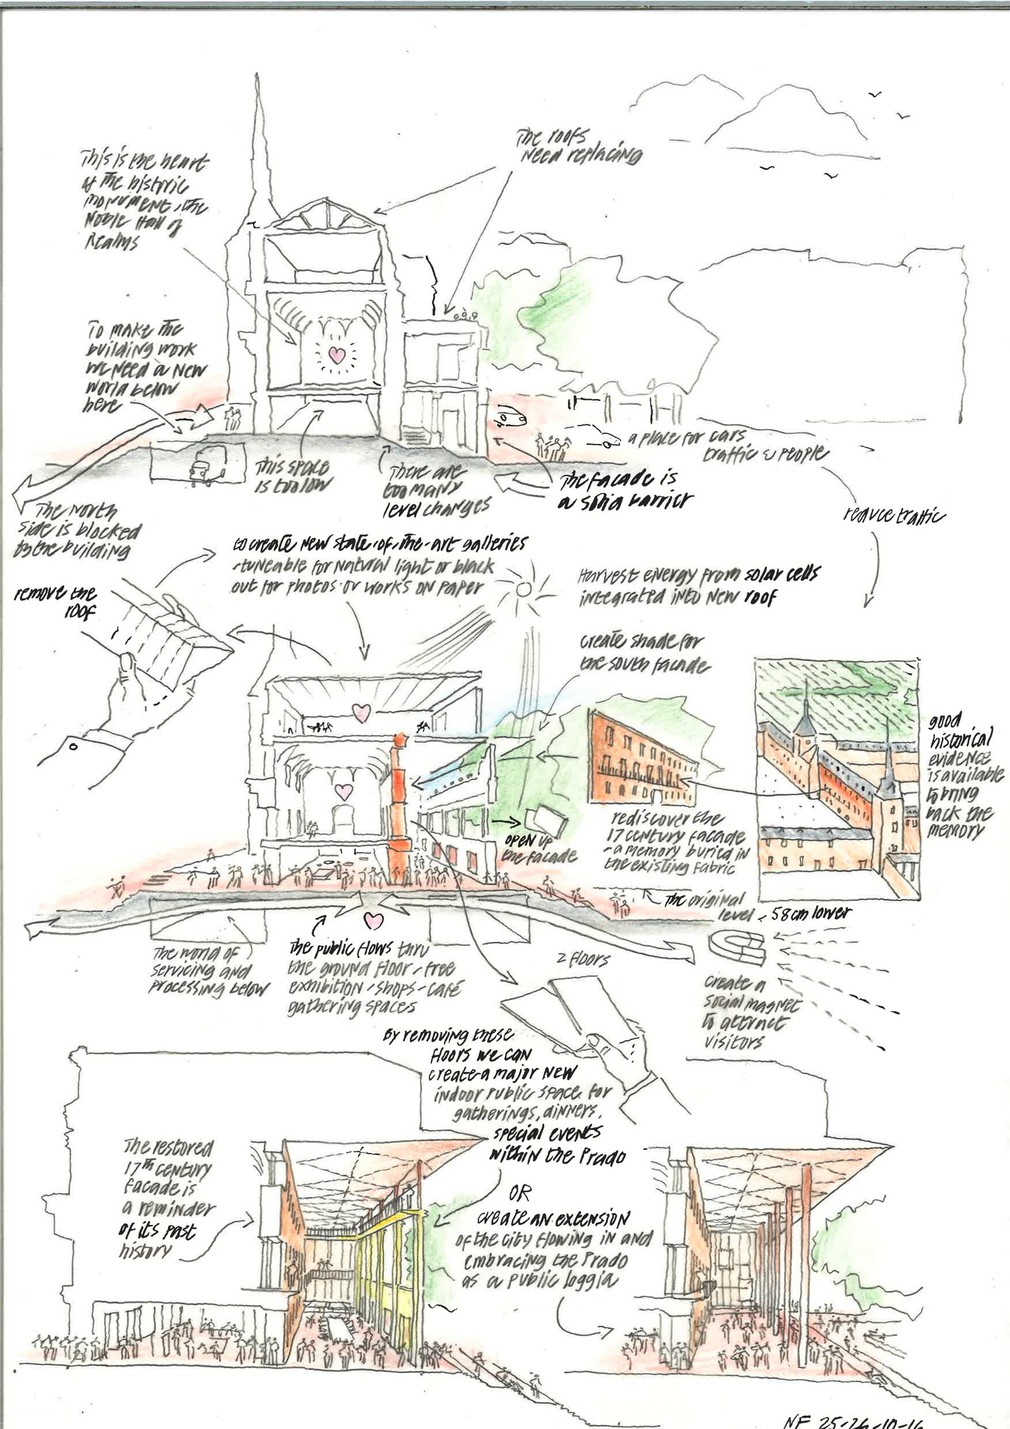 This is the heart
of the historic
monument, the
Noble Hall of
Realms
The roofs
need replacing
To make the
building work
we need a new
world below
here
This space
is too low
There are
too many
level changes
The facade is
a solid barrier
a place for cars
traffic & people
The north
side is blocked
by the building
reduce traffic
remove the
roof
to create new state-of-the-art galleries
-tuneable for natural light or black
out for photos or works on paper
Harvest energy from solar cells
integrated into new roof
create shade for
the south facade
open up
the facade
rediscover the
17 century facade
- a memory buried in
the existing fabric
good
historical
evidence
is available
to bring
back the
memory
The original
level - 58cm lower
The world of
servicing and
processing below
The public flows thru
the ground floor - free
exhibition - shops - café
gathering spaces
2 floors
create a
social magnet
to attract
visitors
By removing these
floors we can
create a major new
indoor public space for
gatherings, dinners,
special events
within the Prado
The restored
17th century
facade is
a reminder
of its past
history
OR
create an extension
of the city flowing in and
embracing the Prado
as a public loggia
NF 25-26-10-16